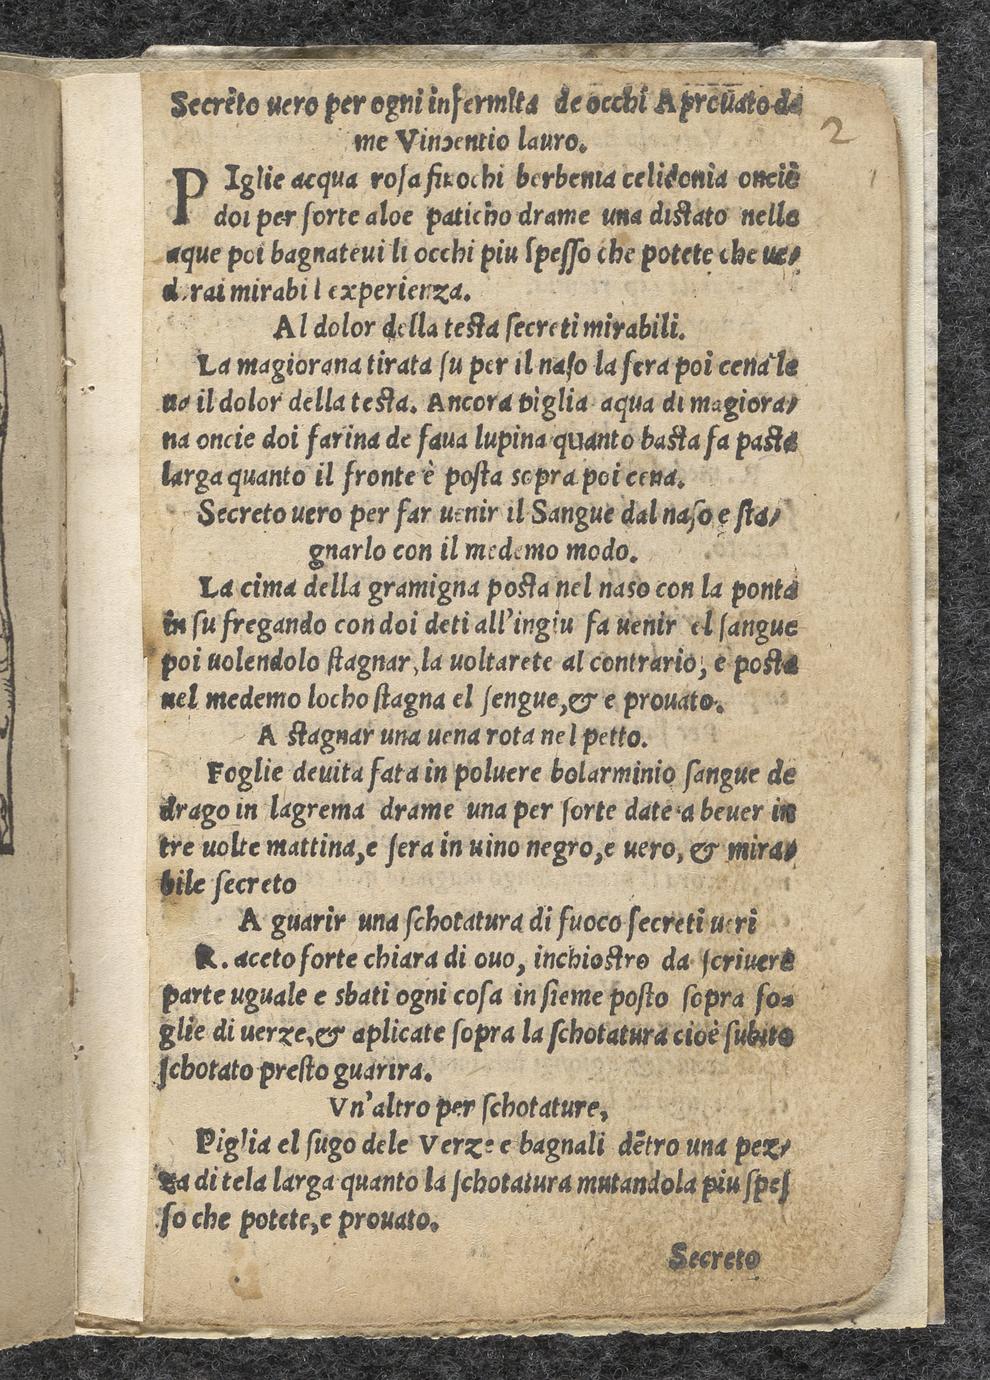 Secrēto uero per ogni infermita de occhi Aprouato da
2
me Vincentio lauro.
PIglie acqua rosa finochi berbenia celidonia onciè
doi per sorte aloe paticho drame una distato nelle
aque poi bagnateui li occhi piu spesso che potete che ue/
d rai mirabil experienza.
Al dolor della testa secreti mirabili.
La magiorana tirata su per il naso la sera poi cena le
ua il dolor della testa. Ancora piglia aqua di magiora/
na oncie doi farina de faua lupina quanto basta fa pasta
larga quanto il fronte è posta sopra poi cena.
Secreto uero per far uenir il Sangue dal naso e sta/
gnarlo con il medemo modo.
La cima della gramigna posta nel naso con la ponta
in su fregando con doi deti all'ingiu fa uenir el sangue
poi uolendolo stagnar, la uoltarete al contrario, e posta
nel medemo locho stagna el sengue, & e prouato.
A stagnar una uena rota nel petto.
Foglie deuita fata in poluere bolarminio sangue de
drago in lagrema drame una per sorte date a beuer in
tre uolte mattina, e sera in uino negro, e uero, & mira/
bile secreto
A guarir una schotatura di fuoco secreti ueri
R. aceto forte chiara di ouo, inchiostro da scriuere
parte uguale e sbati ogni cosa insieme posto sopra fo=
glie di uerze, & aplicate sopra la schotatura cioè subito
schotato presto guarira.
Vn'altro per schotature,
Piglia el sugo dele Verze e bagnali dētro una pez/
za di tela larga quanto la schotatura mutandola piu spes
so che potete, e prouato.
Secreto